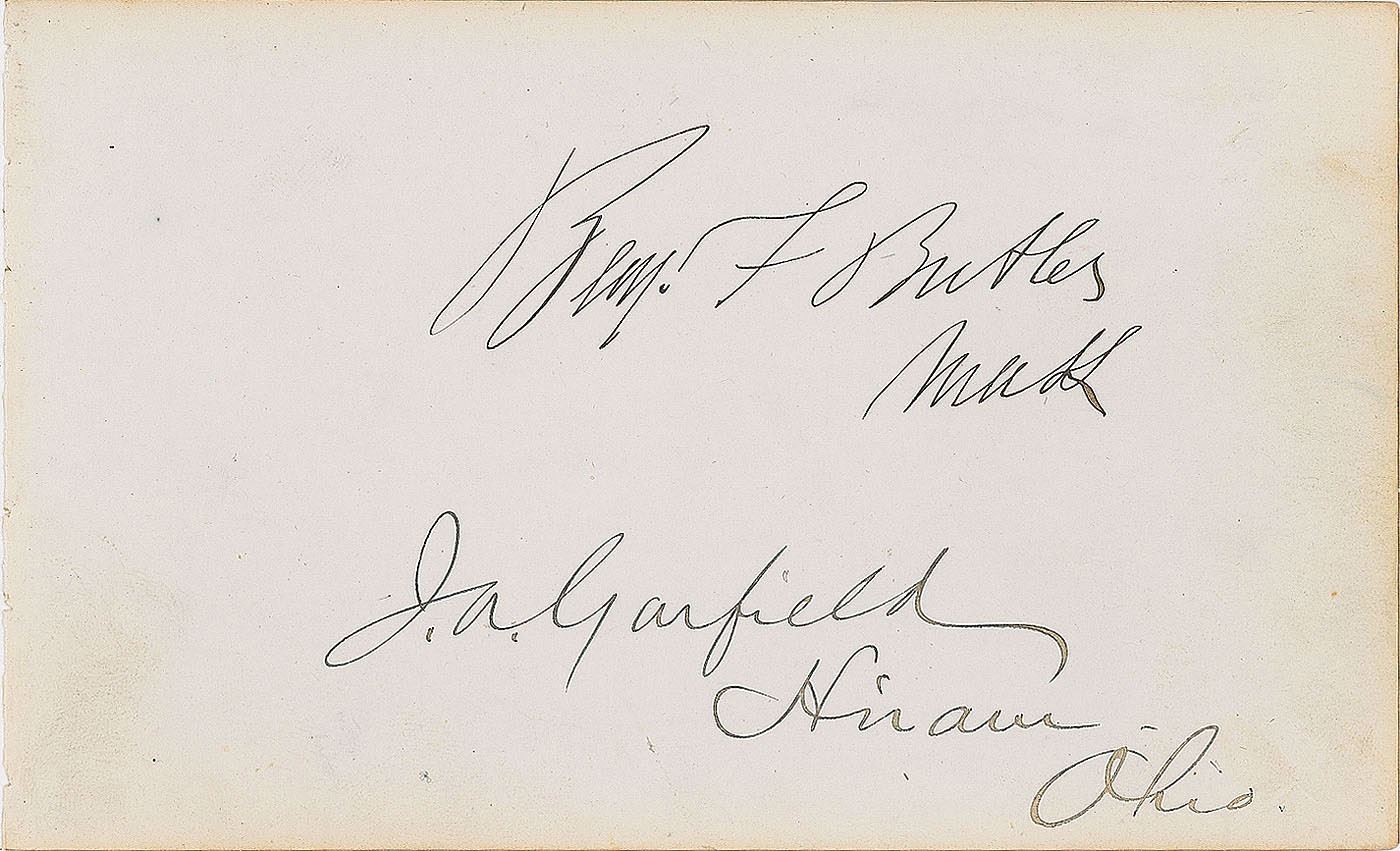 Benj. F Butler
Mass
J. A. Garfield
Hiram -
Ohio.